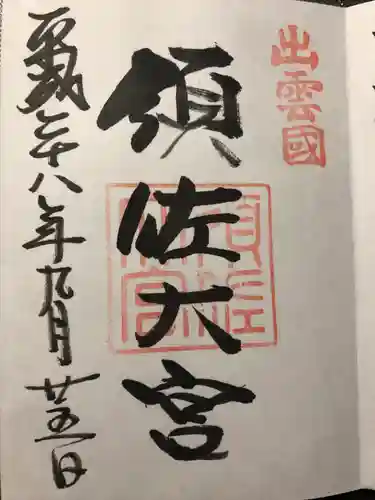 出雲國
須佐大宮
平成二十八年九月廿五日